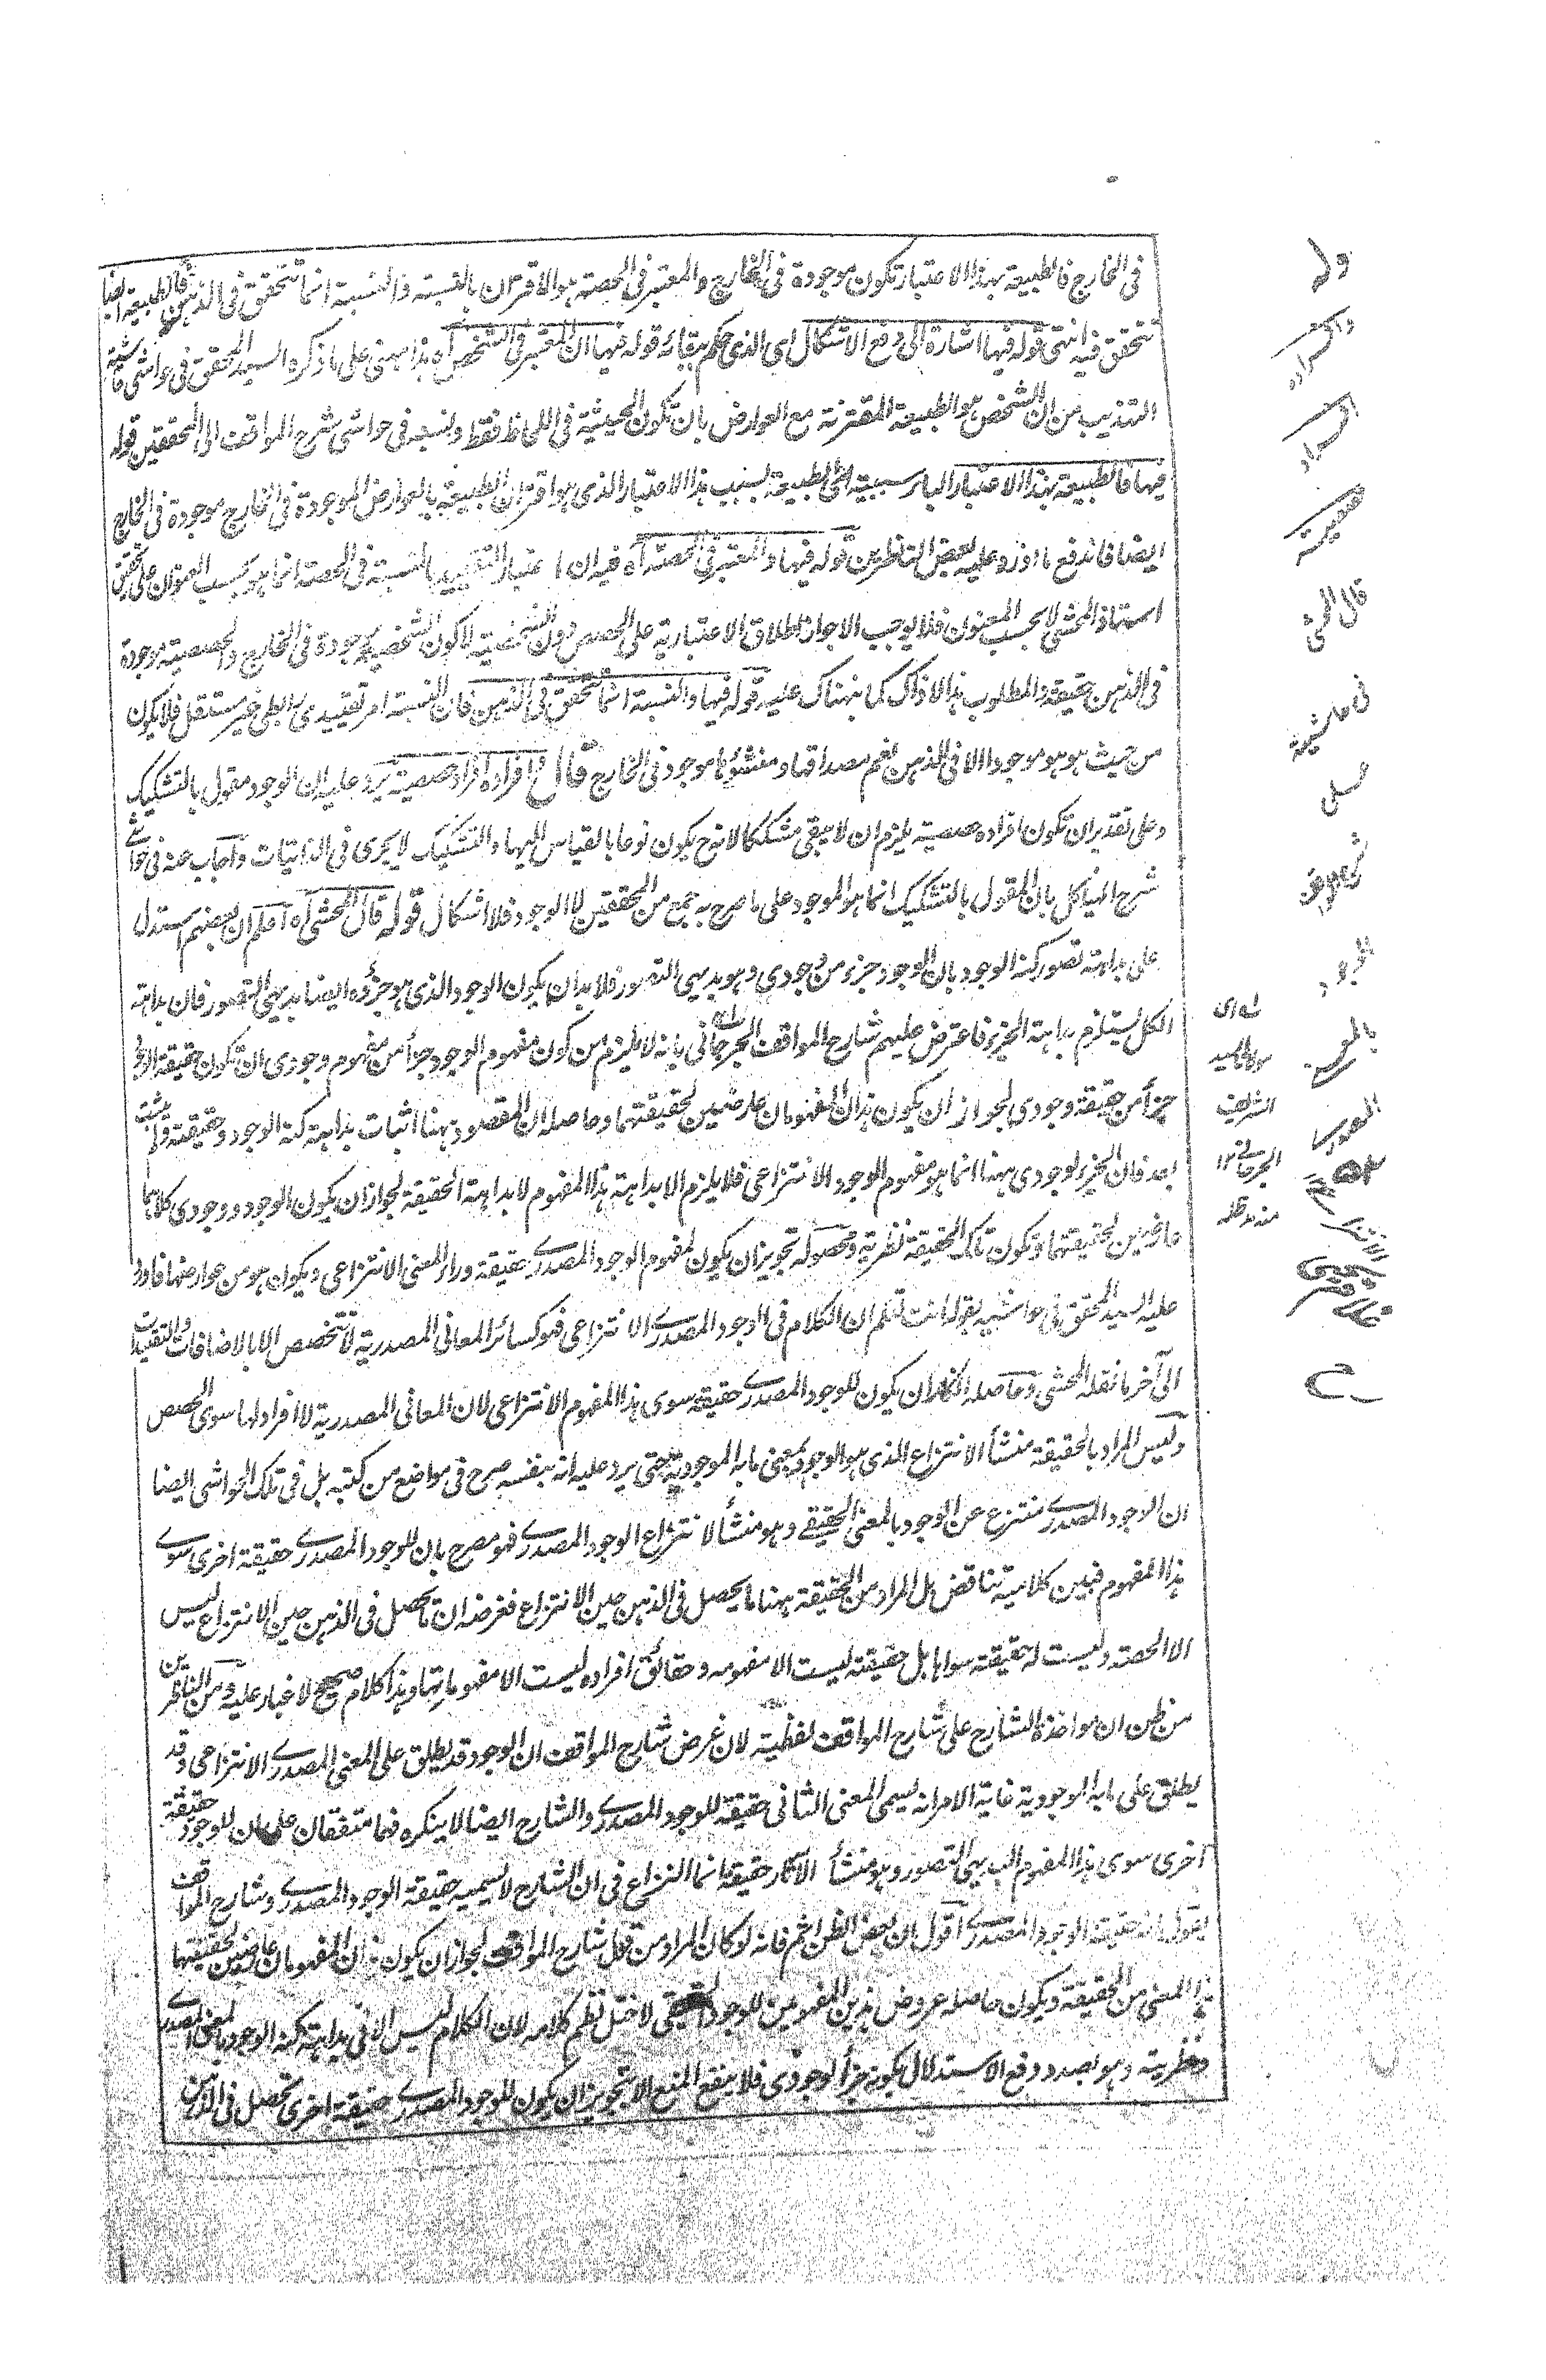 فى الخارج فالطبيعة بهذا الاعتبار تكون موجودة فى الخارج والمعتبر فى الحصة هو الاقتران بالنسبة والنسبة انما تتحقق فى الذهن فالطبيعة ايضا
تتحقق فيه انتهى قوله فيها اشارة الى دفع الاشكال اى الذى حكم ببقائه قوله فيها ان المعتبر فى الشخص آه هذا مبنى على ما ذكره السيد المحقق فى حواشى حاشية
التهذيب من ان الشخص هو الطبيعة المقترنة مع العوارض بان تكون الحيثية فى اللحاظ فقط ونسبه فى حواشى شرح المواقف الى المحققين قوله
فيها فالطبيعة بهذا الاعتبار الباء سببية اى الطبيعة بسبب هذا الاعتبار الذى هو اقتران الطبيعة بالعوارض الموجودة فى الخارج موجودة فى الخارج
ايضا فاندفع ما اورد عليه بعض الناظرين قوله فيها والمعتبر فى الحصة آه فيه ان اعتبار التقييد بالنسبة فى الحصة انما هو بحسب العنوان على تحقيق
استاذ المحشى لا بحسب المعنون فلا يوجب الا جواز اطلاق الاعتبارية على الحصص دون الشخصية لا كون الشخصية موجودة فى الخارج والحصصية موجودة
فى الذهن حقيقة والمطلوب هذا لا ذاك كما نبهناك عليه قوله فيها والنسبة انما تتحقق فى الذهن فان النسبة امر تقييدى رابطى غير مستقل فلا يكون
من حيث هو هو موجودا الا فى الذهن نعم مصداقها ومنشؤها موجود فى الخارج قال وافراده افراد حصصية يرد عليه ان الوجود مقول بالتشكيك
وعلى تقدير ان تكون افراده حصصية يلزم ان لا يبقى مشككا لانه ح يكون نوعا بالقياس اليها والتشكيك لا يجرى فى الذاتيات واجاب عنه فى حواشى
شرح الهياكل بان المقول بالتشكيك انما هو الموجود على ما صرح به جمع من المحققين لا الوجود فلا اشكال قوله قال المحشى آه اعلم ان بعضهم استدل
على بداهة تصور كنه الوجود بان الوجود جزء من وجودى وهو بديهى التصور فلا بد ان يكون الوجود الذى هو جزؤه ايضا بديهى التصور فان بداهة
الكل يستلزم بداهة الجزء فاعترض عليهم شارح المواقف الجرجانى بانه لا يلزم من كون مفهوم الوجود جزأ من مفهوم وجودى ان تكون حقيقة الوجود
جزأ من حقيقة وجودى لجواز ان يكون هذان المفهومان عارضين لحقيقتهما وحاصله ان المقصود ههنا اثبات بداهة كنه الوجود وحقيقته ولم يثبت
بعد فان الجزء لوجودى ههنا انما هو مفهوم الوجود الانتزاعى فلا يلزم الا بداهة هذا المفهوم لا بداهة الحقيقة لجواز ان يكون الوجود ووجودى كلاهما
عارضين لحقيقتهما وتكون تلك الحقيقة نظرية ومحصوله تجويز ان يكون لمفهوم الوجود المصدرى حقيقة وراء المعنى الانتزاعى ويكون هو من عوارضها فاورد
عليه السيد المحقق فى حواشيه بقوله انت تعلم ان الكلام فى الوجود المصدرى الانتزاعى فهو كسائر المعانى المصدرية لا تتخصص الا بالاضافات والتقييدات
الى آخر ما نقله المحشى وحاصله انكار ان يكون للوجود المصدرى حقيقة سوى هذا المفهوم الانتزاعى لان المعانى المصدرية لا افراد لها سوى الحصص
وليس المراد بالحقيقة منشأ الانتزاع الذى هو الوجود بمعنى ما به الموجودية حتى يرد عليه انه بنفسه صرح فى مواضع من كتبه بل فى تلك الحواشى ايضا
ان الوجود المصدرى منتزع عن الوجود بالمعنى الحقيقى وهو منشأ لانتزاع الوجود المصدرى فهو مصرح بان للوجود المصدرى حقيقة اخرى سوى
هذا المفهوم فبين كلاميه تناقض بل المراد من الحقيقة ههنا ما يحصل فى الذهن حين الانتزاع فغرضه ان ما يحصل فى الذهن حين الانتزاع ليس
الا الحصة وليست له حقيقة سواها بل حقيقته ليست الا مفهومه وحقائق افراده ليست الا مفهوماتها وهذا كلام صحيح لا غبار عليه ومن الناظرين
من ظن ان مواخذة الشارح على شارح المواقف لفظية لان غرض شارح المواقف ان الوجود قد يطلق على المعنى المصدرى الانتزاعى وقد
يطلق على ما به الموجودية غاية الامر انه يسمى المعنى الثانى حقيقة للوجود المصدرى والشارح ايضا لا ينكره فهما متفقان على ان للوجود حقيقة
اخرى سوى هذا المفهوم البديهى التصور وهو منشأ الآثار حقيقة انما النزاع فى ان الشارح لا يسميه حقيقة الوجود المصدرى وشارح المواقف
يقول انه حقيقة الوجود المصدرى اقول ان بعض الظن اثم فانه لو كان المراد من قول شارح المواقف لجواز ان يكون هذان المفهومان عارضين لحقيقتهما
هذا المعنى من الحقيقة ويكون حاصله عروض هذين المفهومين للوجود الحقيقى لاختل نظم كلامه لان الكلام ليس الا فى بداهة كنه الوجود بالمعنى المصدرى
ونظريته وهو بصدد دفع الاستدلال بكونه جزأ لوجودى فلا ينفع المنع الا بتجويز ان يكون للوجود المصدرى حقيقة اخرى تحصل فى الذهن
وافراده
افراد
حصصية
قال المحشى
فى حاشية
على
شرح المواقف
الوجود
بالمعنى
المصدرى
اى
مولانا السيد
الشريف
الجرجانى ١٢
منه مدظله